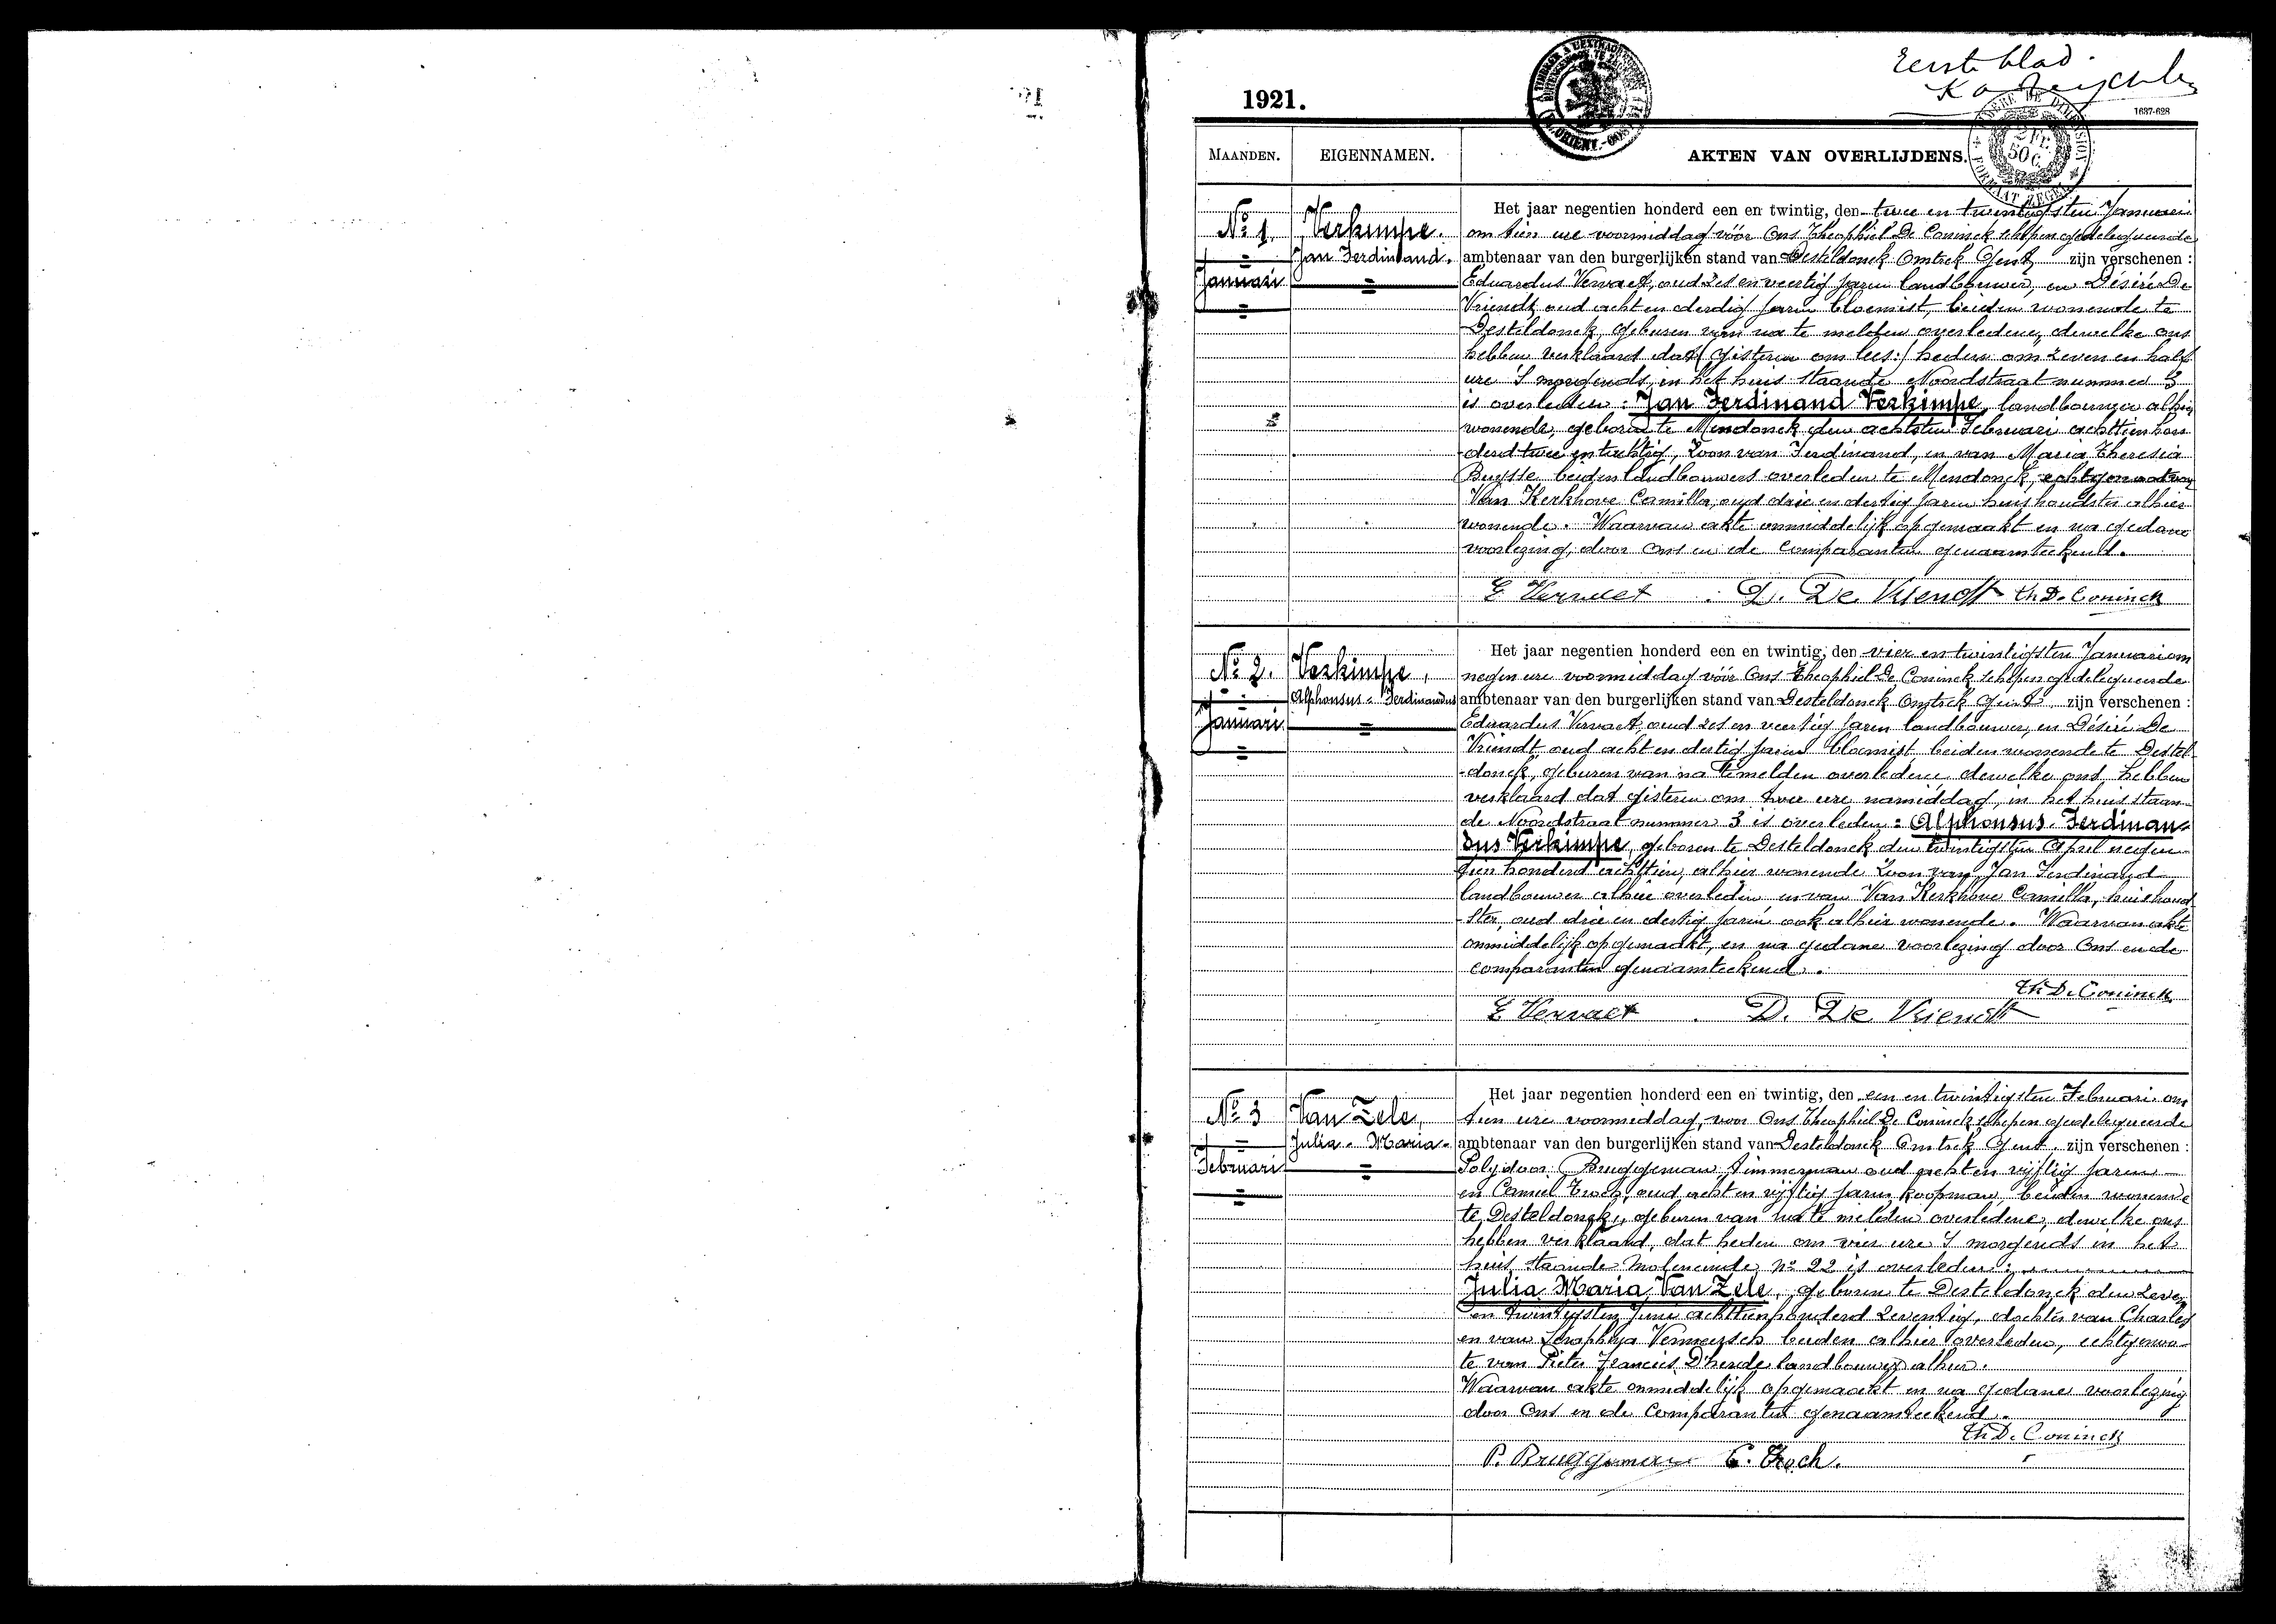 Eerste blad.
1921.
1637-628
MAANDEN.
EIGENNAMEN.
AKTEN VAN OVERLIJDENS.
2 Fr.
50 c.
No 1.
Januari
Verkimpe.
Jan Ferdinand.
Het jaar negentien honderd een en twintig, den twee en twintigsten Januari
om tien ure voormiddag vóór Ons Theophiel De Coninck schepen gedelegueerde
ambtenaar van den burgerlijken stand van Desteldonck Omtrek Gent zijn verschenen :
Eduardus Vervaet, oud zes en veertig jaren landbouwer, en Désiré De
Vriendt, oud acht en dertig jaren bloemist, beiden wonende te
Desteldonck, geburen van na te melden overledene, dewelke ons
hebben verklaard dat (gisteren om lees:) heden om zeven en half
ure 's morgends, in het huis staande Noordstraat nummer 3
is overleden : Jan Ferdinand Verkimpe, landbouwer alhier
wonende, geboren te Mendonck den achtsten Februari achttien hon-
-derd twee en tachtig, zoon van Ferdinand, en van Maria Theresia
Buysse beiden landbouwers overleden te Mendonck, echtgenoot van
Van Kerkhove Camilla, oud drie en dertig jaren huishoudster alhier
wonende. Waarvan akte onmiddelijk opgemaakt en na gedane
voorlezing, door Ons en de comparanten genaamteekend.
E Vervaet D. De Vriendt Th De Coninck
No 2.
Januari
Verkimpe,
Alphonsus-Ferdinandus
Het jaar negentien honderd een en twintig, den vier en twintigsten Januari om
negen ure voormiddag vóór Ons Theophiel De Coninck schepen gedelegueerde
ambtenaar van den burgerlijken stand van Desteldonck Omtrek Gent zijn verschenen :
Eduardus Vervaet, oud zes en veertig jaren landbouwer, en Désiré De
Vriendt oud acht en dertig jaren bloemist beiden wonende te Destel-
-donck, geburen van na te melden overledene dewelke ons hebben
verklaard dat gisteren om twee ure namiddag, in het huis staan-
de Noordstraat nummer 3 is overleden : Alphonsus-Ferdinan-
dus Verkimpe, geboren te Desteldonck den twintigsten April negen-
tien honderd achttien, alhier wonende zoon van Jan Ferdinand
landbouwer alhier overleden en van Van Kerkhove Camilla, huishoud-
-ster, oud drie en dertig jaren ook alhier wonende. Waarvan akte
onmiddelijk opgemaakt, en na gedane voorlezing door Ons en de
comparanten genaamteekend.
Th De Coninck
E Vervaet D. De Vriendt
No 3
Februari
Van Zele,
Julia-Maria-
Het jaar negentien honderd een en twintig, den een en twintigsten Februari om
tien ure voormiddag, voor Ons Theophiel De Coninck schepen gedelegueerde
ambtenaar van den burgerlijken stand van Desteldonck Omtrek Gent. zijn verschenen :
Polydoor Bruggeman timmerman oud acht en vijftig jaren
en Camiel Troch, oud acht en vijftig jaren, koopman, beiden wonende
te Desteldonck, geburen van na te melden overledene, dewelke ons
hebben verklaard, dat heden om vier ure 's morgends in het
huis staande Moleneinde, no 22 is overleden :
Julia Maria Van Zele, geboren te Desteldonck den zeven
en twintigsten Juni achttienhonderd zeventig, dochter van Charles
en van Seraphya Vermeersch beiden alhier overleden, echtgenoo-
te van Pieter Francies D'hende landbouwer alhier.
Waarvan akte onmiddelijk opgemaakt en na gedane voorlezing
door Ons en de comparanten genaamteekend.
Th De Coninck
P. Bruggeman C. Troch.